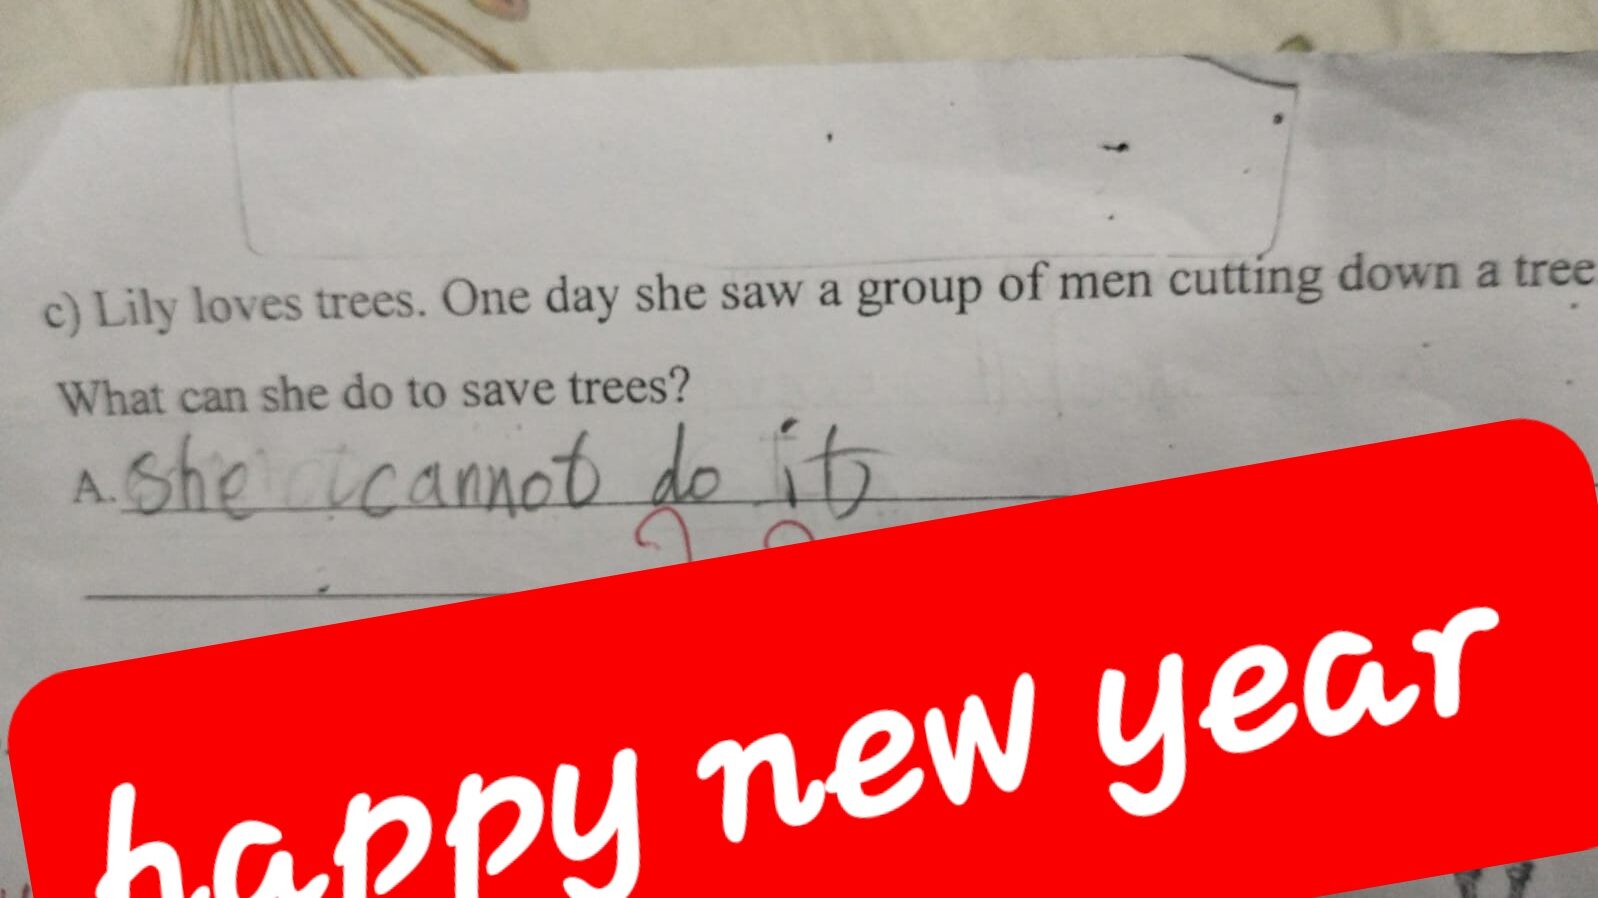 c) Lily loves trees. One day she saw a group of men cutting down a tree
What can she do to save trees?
A. She cannot do it
happy new year